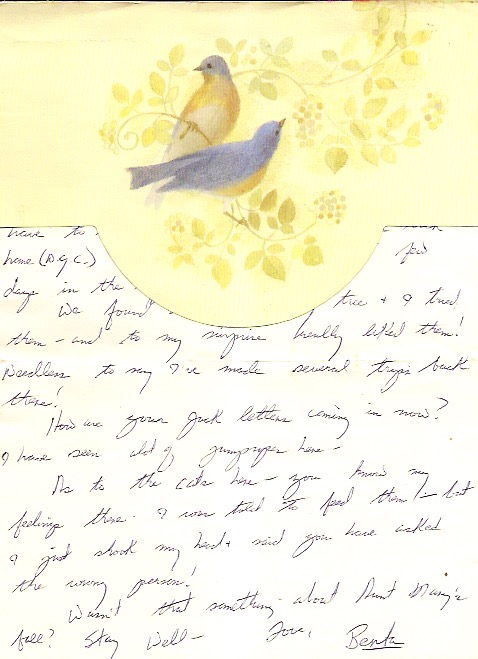 have to
home (D.G.C.) few
days in the
We found tree + I tried
them - and to my surprise really liked them!
Needless to say I've made several trips back
there!
How are your Jack letters coming in now?
I have seen alot of here -
As to the cats here - you know my
feelings there. I was told to feed them - but
I just shook my head + said you have asked
the wrong person!
Wasn't that something about Aunt Mary's
fall? Stay Well - Love, Benta